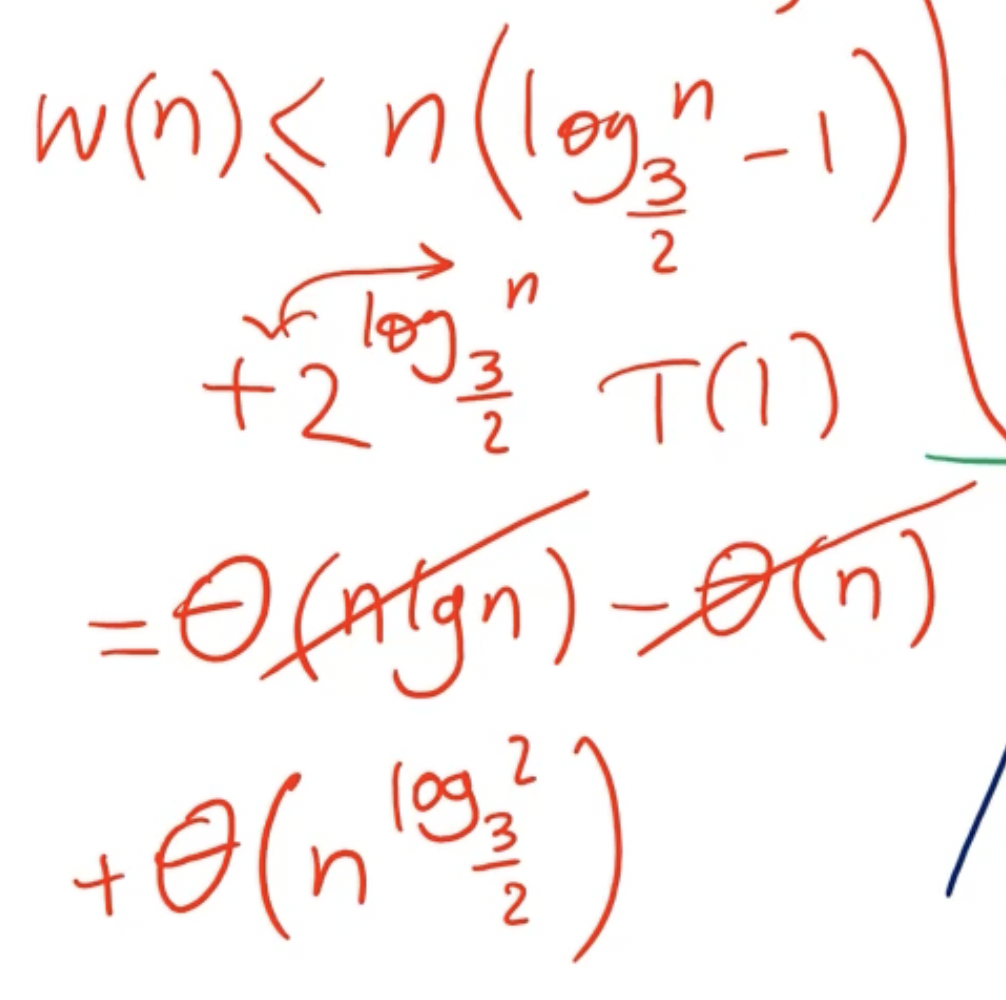 w(n) ≤ n(log_{3/2}^n - 1)
+ 2^{log_{3/2}^n} T(1)
= Θ(n lg n) - Θ(n)
+ Θ(n^{log_{3/2}^2})